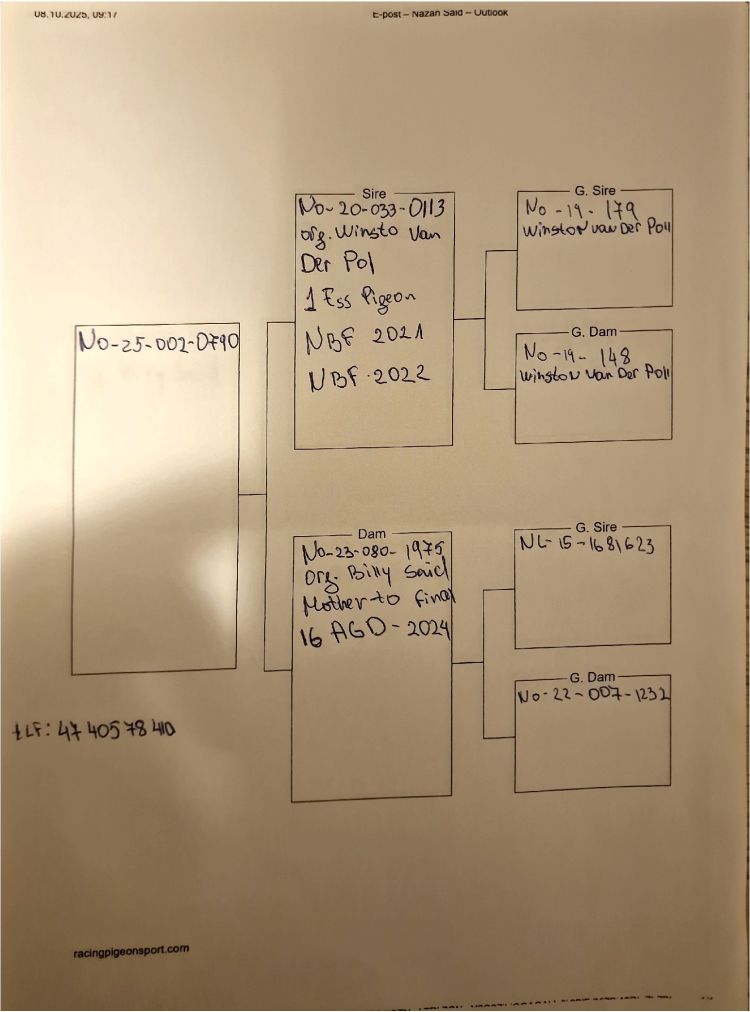 08.10.2025, 09:17
E-post – Nazan Said – Outlook
No-25-002-0790
Sire
No-20-033-0113
org. Winsto Van
Der Pol
1 Ess Pigeon
NBF 2021
NBF 2022
G. Sire
No-19-179
Winston van Der Poll
G. Dam
No-19-148
Winston Van Der Poll
Dam
No-23-080-1975
Org. Billy Said
Mother to final
16 AGD-2024
G. Sire
NL-15-1681623
G. Dam
No-22-007-1232
tLF: 47 40578410
racingpigeonsport.com